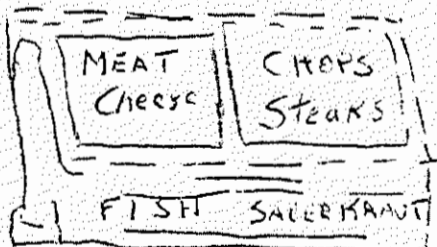 MEAT
Cheese
CHOPS
Steaks
FISH SAUERKRAUT